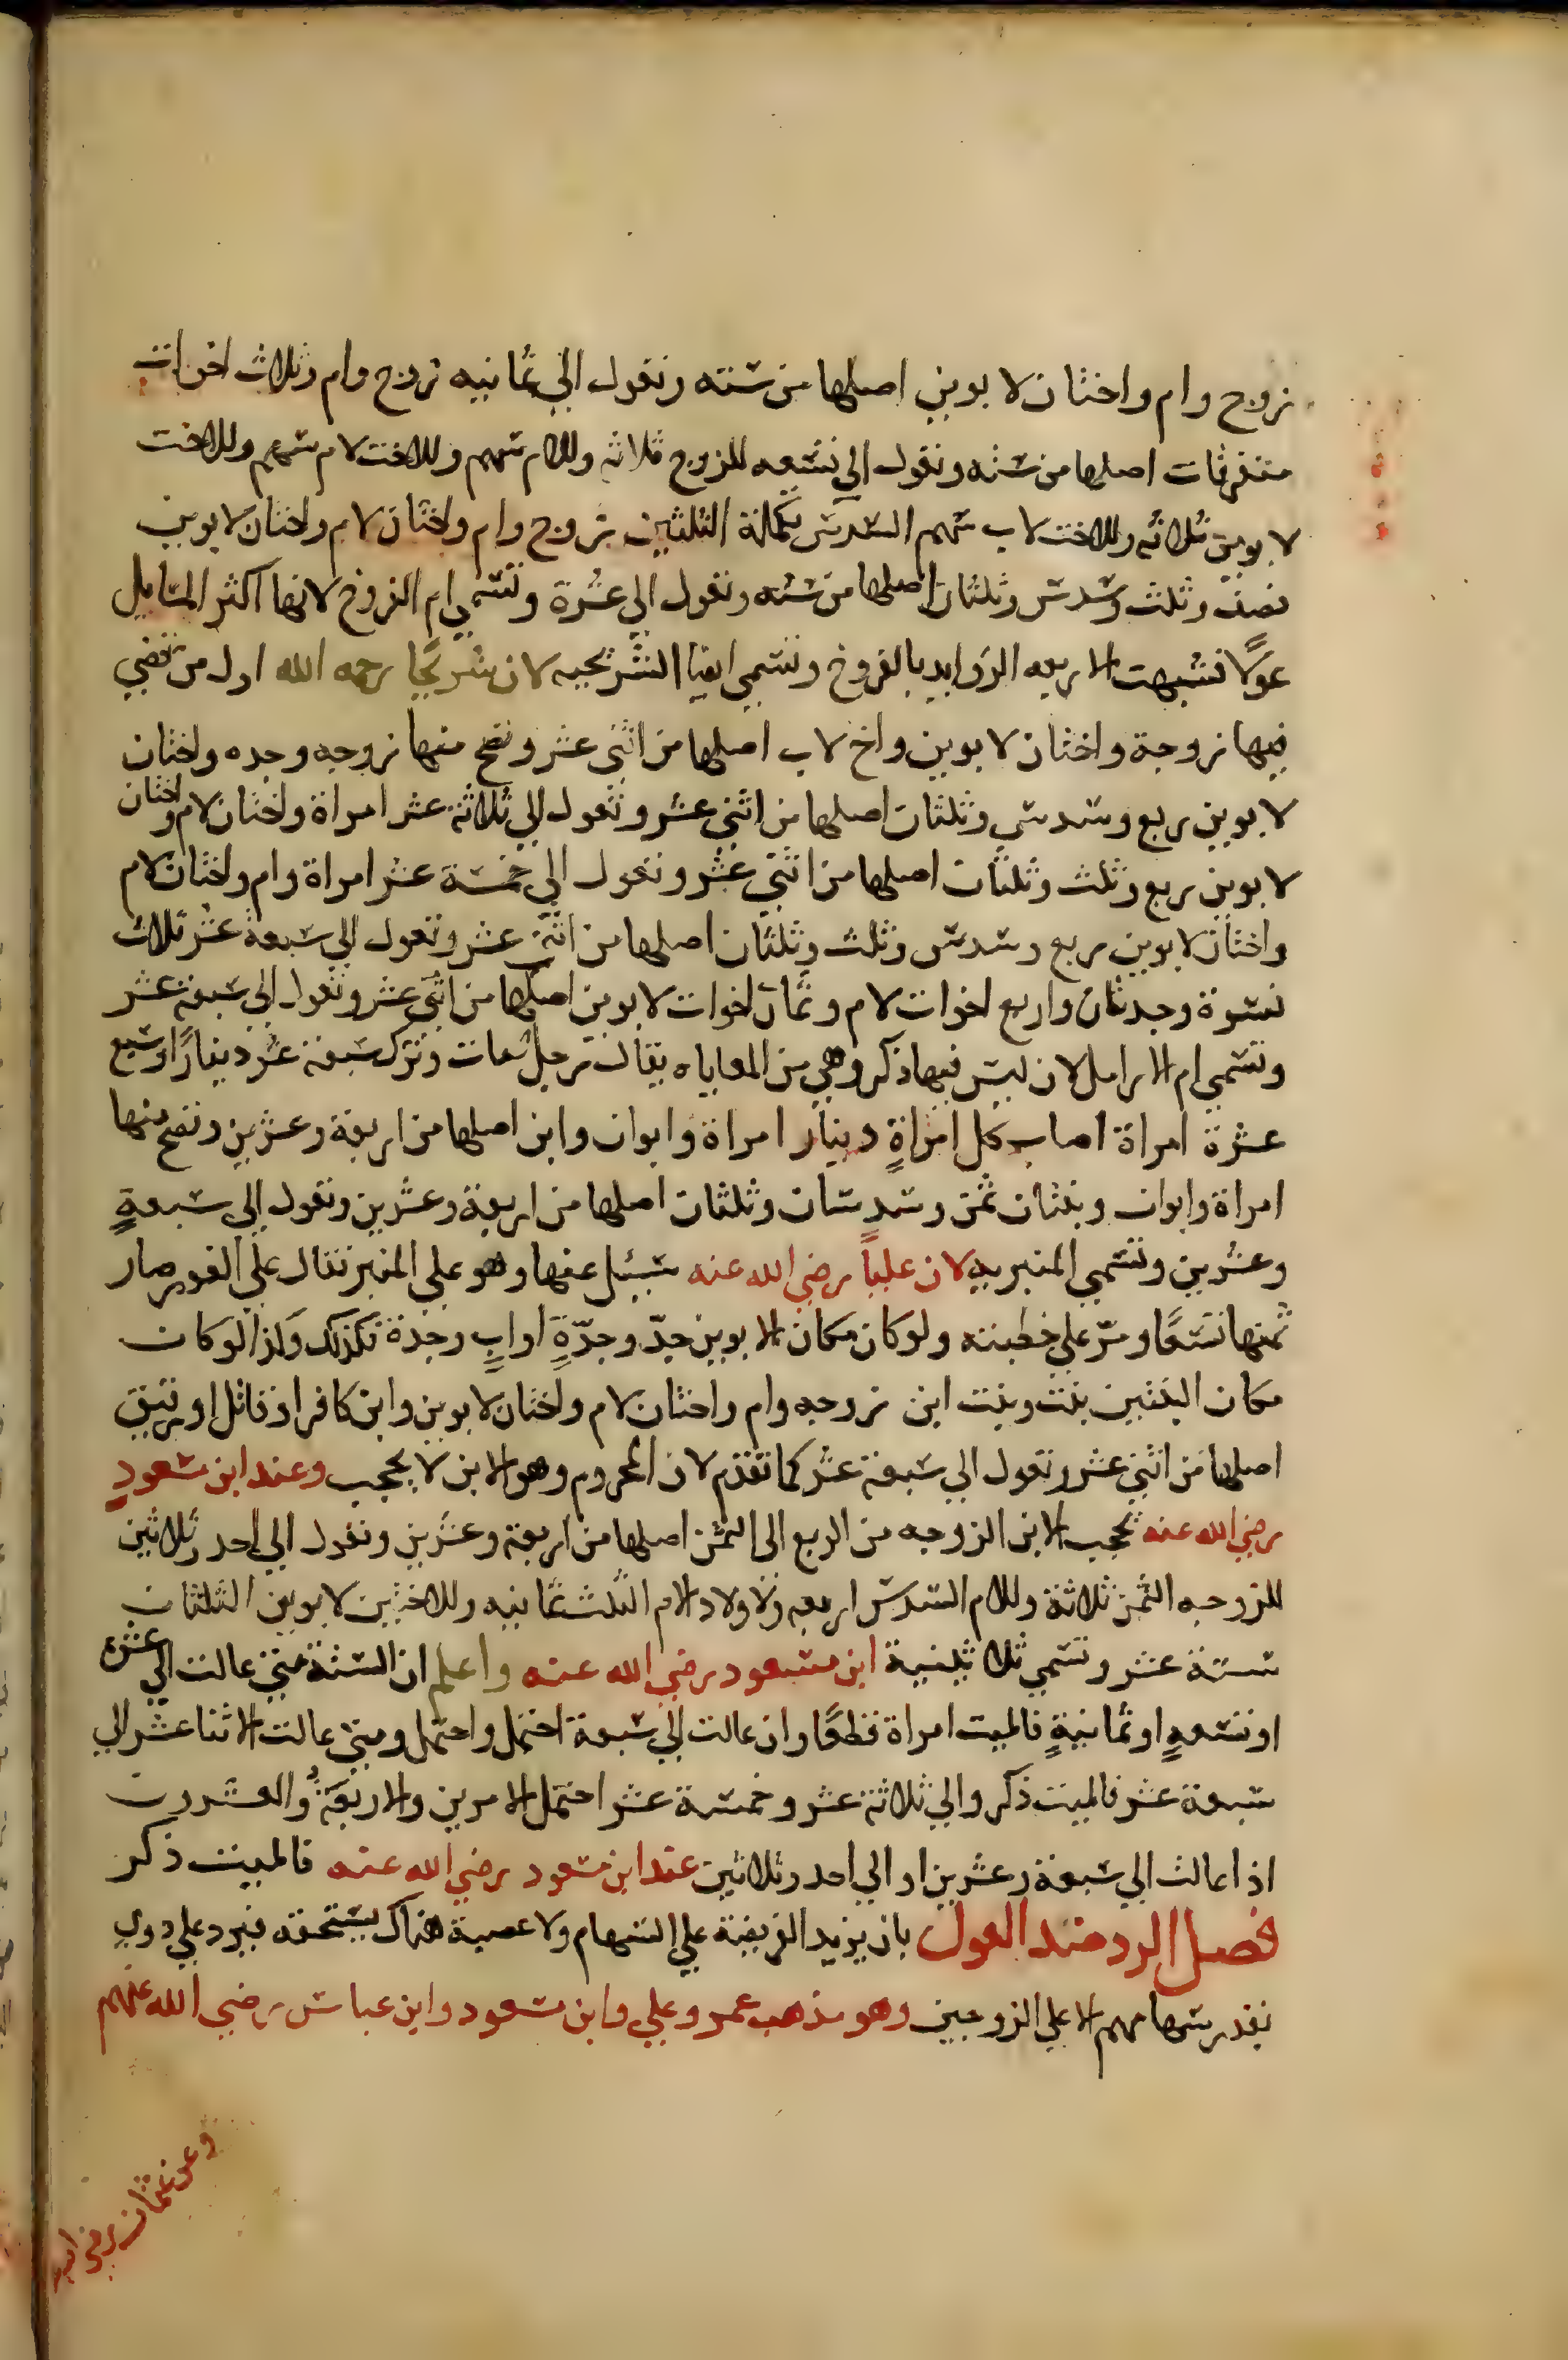 زوج وام واختان لابوين اصلها من ستة وتعول الي ثمانيه زوج وام وثلاث اخوات
متفرقات اصلها من سته وتعول الي تسعه للزوج ثلاثه وللام سهم وللاخت لام سهم وللاخت
لابوين ثلاثه وللاخت لاب سهم السدس تكملة الثلثين زوج وام واختان لام واختان لابوين
نصف وثلث وسدس وثلثان اصلها من سته وتعول الي عشرة وتسمي ام الفروخ لانها اكثر المسايل
عولا فشبهت الاربعه الزوايد بالفروخ وتسمي ايضا الشريحيه لان شريحا رحمه الله اول من قضي
فيها زوجة واختان لابوين واخ لاب اصلها من اثني عشر وتصح منها زوجه وجده واختان
لابوين ربع وسدس وثلثان اصلها من اثني عشر وتعول الي ثلاثة عشر امراة واختان لام واختان
لابوين ربع وثلث وثلثان اصلها من اثني عشر وتعول الي خمسة عشر امراة وام واختان لام
واختان لابوين ربع وسدس وثلث وثلثان اصلها من اثني عشر وتعول الي سبعة عشر ثلاث
نسوة وجدتان واربع اخوات لام وثمان اخوات لابوين اصلها من اثني عشر وتعول الي سبعة عشر
وتسمي ام الارامل لان ليس فيها ذكر وهي من المعاياه يقال رجل مات وترك سبعة عشر دينارا وسبع
عشرة امراة اصاب كل امراة دينار امراة وابوان وابن اصلها من اربعة وعشرين وتصح منها
امراة وابوان وبنتان ثمن وسدسان وثلثان اصلها من اربعة وعشرين وتعول الي سبعة
وعشرين وتسمي المنبريه لان عليا رضي الله عنه سئيل عنها وهو علي المنبر فقال علي الفور صار
ثمنها تسعا ومر علي خطبته ولو كان مكان الابوين جد وجدة او اب وجدة فكذلك وكذا لو كان
مكان البنتين بنت وبنت ابن زوجه وام واختان لام واختان لابوين وابن كافر او قاتل او رقيق
اصلها من اثني عشر وتعول الي سبعة عشر كما تقدم لان المحروم وهو الابن لا يحجب وعند ابن مسعود
رضي الله عنه يحجب الابن الزوجه من الربع الي الثمن اصلها من اربعة وعشرين وتعول الي احد وثلاثين
للزوجه الثمن ثلاثة وللام السدس اربعه ولاولاد الام الثلث ثمانيه وللاختين لابوين الثلثان
ستة عشر وتسمي ثلاثينية ابن مسعود رضي الله عنه واعلم ان الستة متي عالت الي عشره
او تسعة او ثمانية فالميت امراة قطعا وان عالت الي سبعة احتمل واحتمل ومتي عالت الاثنا عشر الي
سبعة عشر فالميت ذكر والي ثلاثة عشر وخمسة عشر احتمل الامرين والاربعة والعشرون
اذا عالت الي سبعة وعشرين او الي احد وثلاثين عند ابن مسعود رضي الله عنه فالميت ذكر
فصل الرد ضد العول بان يزيد الفريضة علي السهام ولا عصبة هناك يستحقه فيرد علي ذوي
بقدر سهامهم الا علي الزوجين وهو مذهب عمر وعلي وابن مسعود وابن عباس رضي الله عنهم
وعن عثمان رضي الله